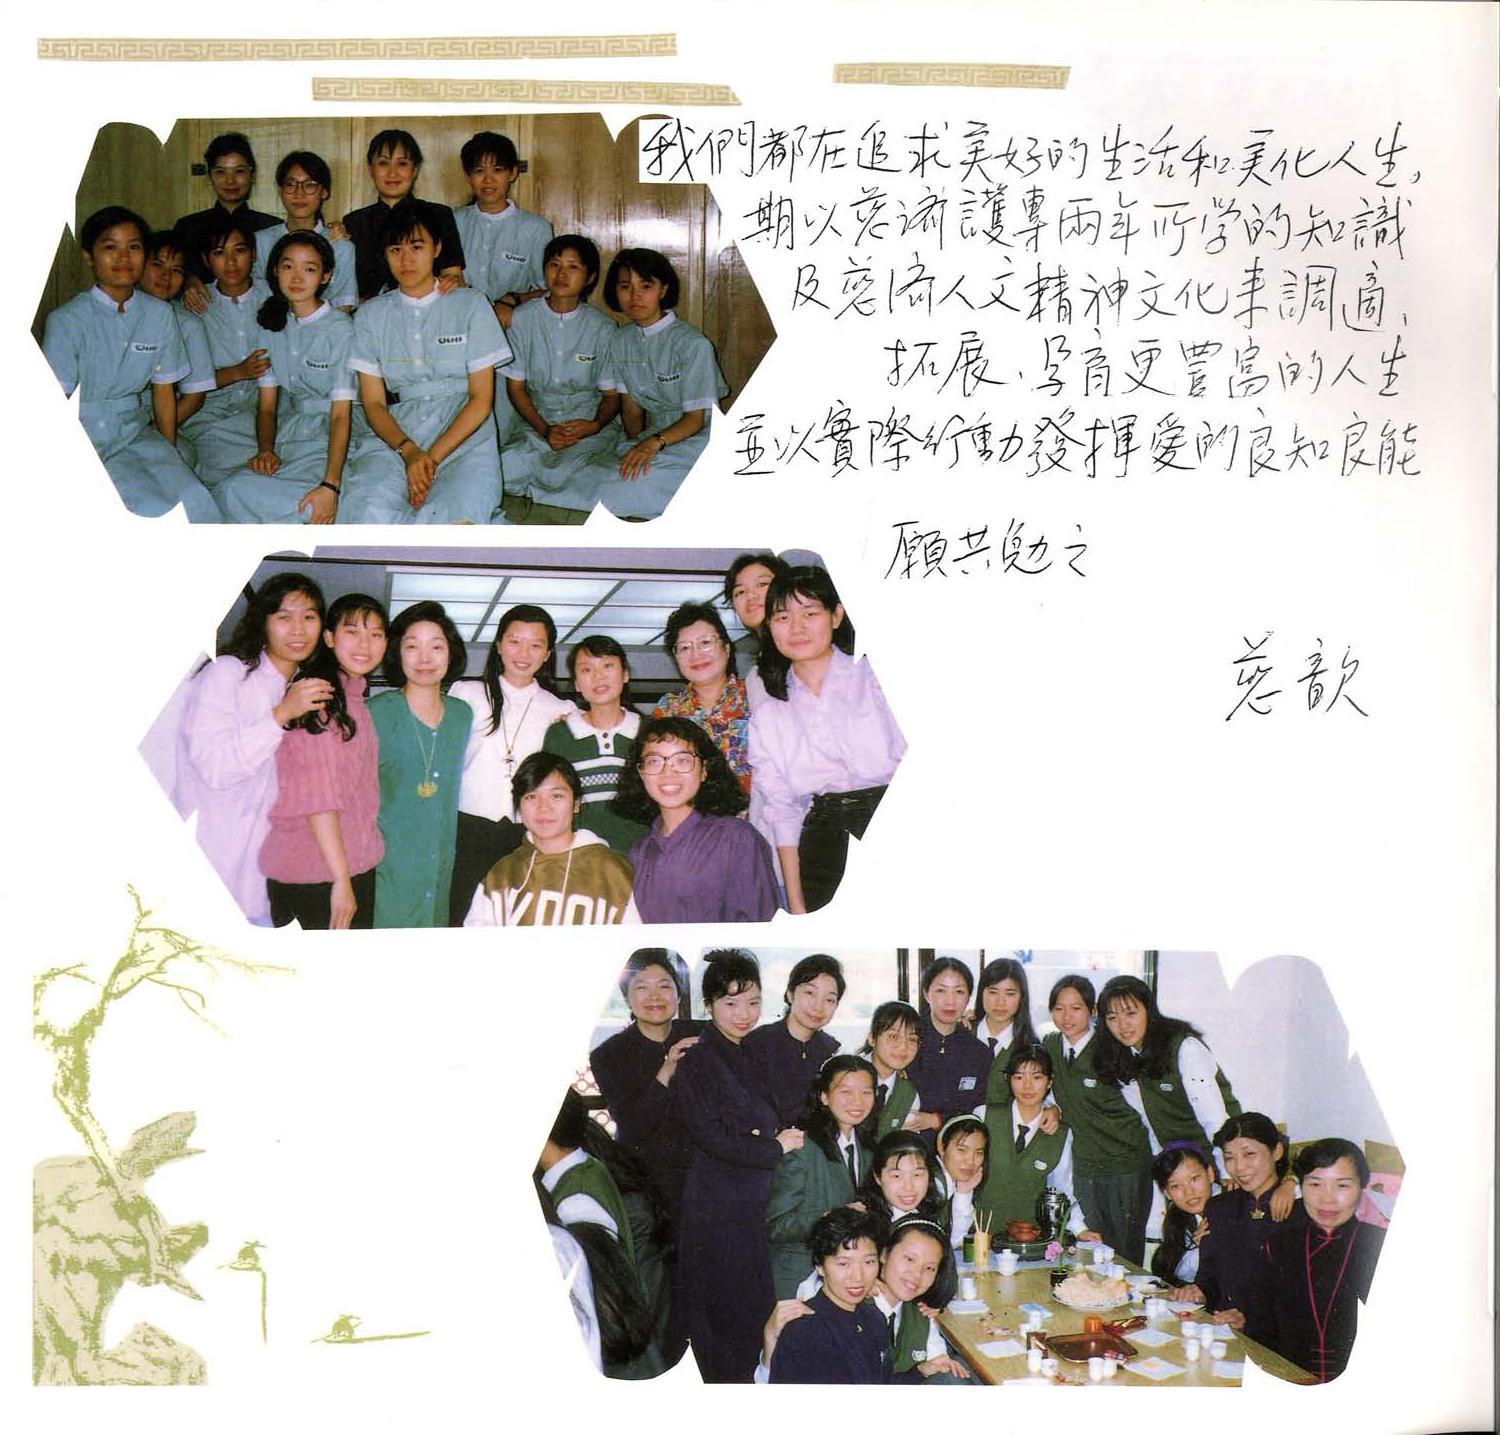 我們都在追求美好的生活和美化人生，
期以慈濟護專兩年所学的知識
及慈濟人文精神文化来調適、
拓展、孕育更豐富的人生
並以實際行動發揮愛的良知良能
願共勉之
慈歆